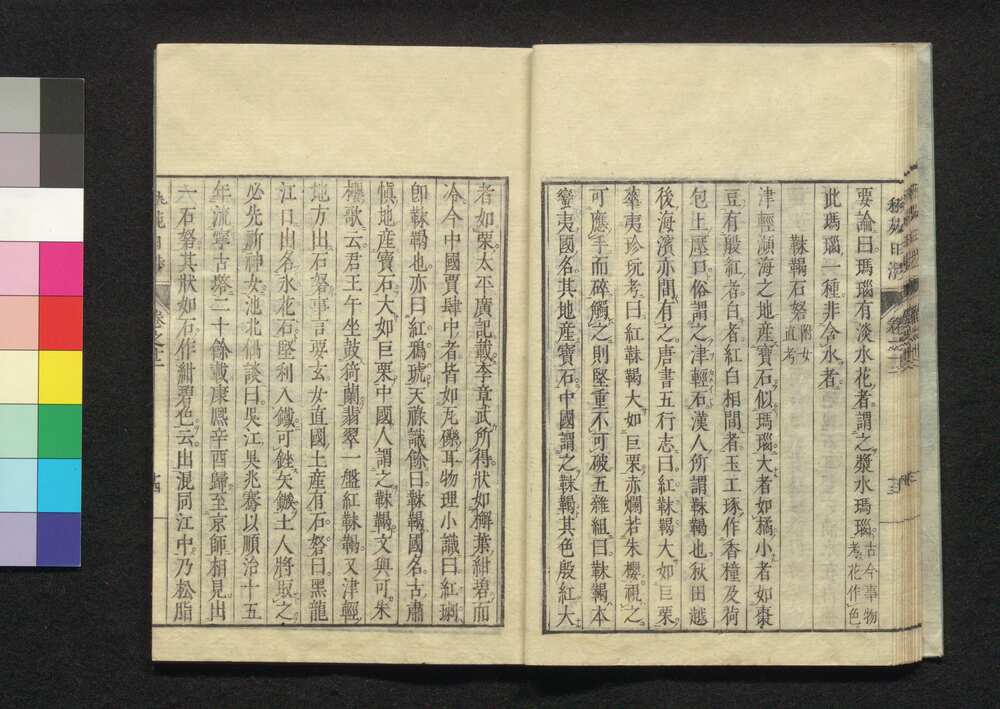 要論曰瑪瑙有淡水花者謂之漿水瑪瑙古今事物考花作色
此瑪瑙一種非含水者
靺鞨石砮附女直考
津輕瀕海之地産寶石似瑪瑙大者如橘小者如棗
豆有殷紅者白者紅白相間者玉工琢作香橦及荷
包上壓口俗謂之津輕石漢人所謂靺鞨也秋田越
後海濱亦間有之唐書五行志曰紅靺鞨大如巨栗
華夷珍玩考曰紅靺鞨大如巨栗赤爛若朱櫻視之
可應手而碎觸之則堅重不可破五雜組曰靺鞨本
蠻夷國名其地産寶石中國謂之靺鞨其色殷紅大
者如栗太平廣記載李章武所得狀如槲葉紺碧而
冷今中國賈肆中者皆如瓦礫耳物理小識曰紅琍
卽靺鞨也亦曰紅鴉琥天祿識餘曰靺鞨國名古肅
愼地産寶石大如巨栗中國人謂之靺鞨文與可朱
櫻歌云君王午坐鼓猗蘭翡翠一盤紅靺鞨又津輕
地方出石砮事言要玄女直國土産有石砮曰黑龍
江口出名水花石堅利入鐵可銼矢鏃土人將取之
必先祈神女池北偶談曰吳江吳兆騫以順治十五
年流寧古塔二十餘載康熙辛酉歸至京師相見出
一石砮其狀如石作紺碧色云出混同江中乃松脂